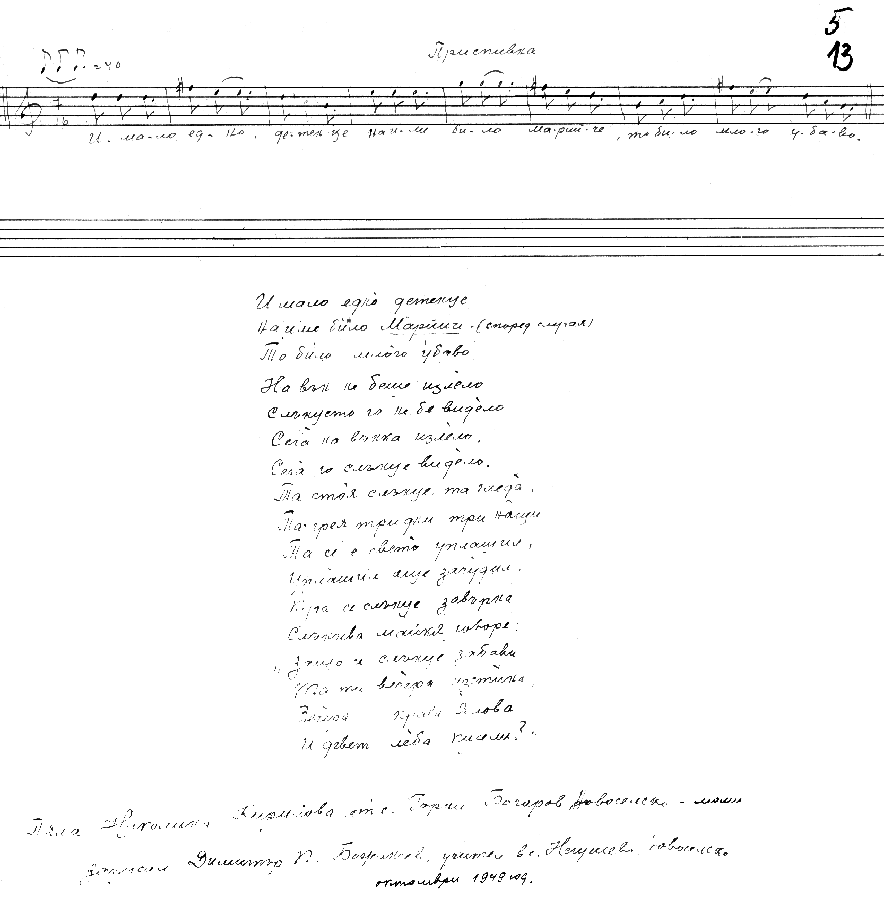 5
13
Приспивка
= 240
И - ма - ло ед - но, де-тен-це на и - ме би - ло Ма-рий-че, то би - ло мло-го у-ба-во.
Имало едно детенце
На име било Марийче (според случая)
То било млого убаво
На вън не беше излело
Слънцето го не бе видело
Сега на вънка излело,
Сега го слънце видело.
Та стоя слънце, та гледа,
Та грея три дни три нощи
Та се е света уплашил,
Уплашил още зачудил.
Кога се слънце завърна
Слънчева майкя говоре:
„Защо се слънце забави
Та ти вечеря изстина,
крава Ялова
И девет леба кисели?"
Пяла Николина Кирилова от с. Горни Богоров Новоселско - мома
записал Димитър П. Божилов, учител в с. Негушево, Новоселско
октомври 1949 год.